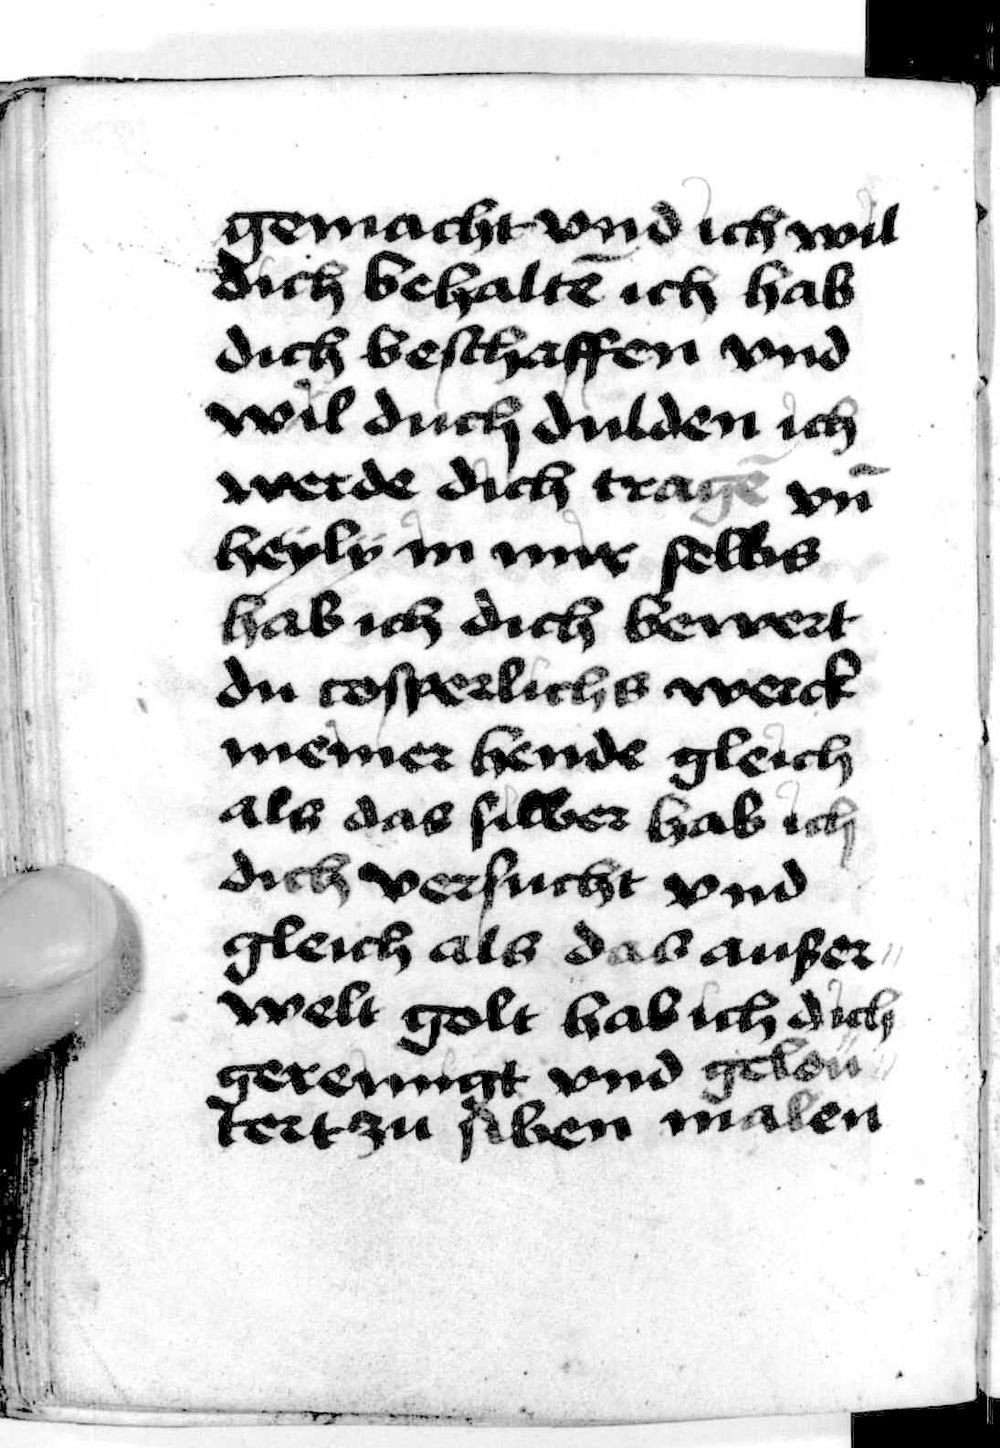 gemacht vnd ich wil
dich behaltē ich hab
dich beschaffen vnd
wil duch dulden ich
werde dich tragē vn̄
heyly in mir selbs
hab ich dich bewert
du cosperlichs werck
meiner hende gleich
als das silber hab ich
dich versucht vnd
gleich als das außer〃
welt golt hab ich dich
gereinigt vnd gelou〃
tert zu siben malen